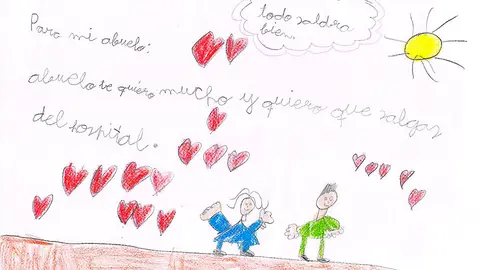 todo saldra
bien.
Para mi abuelo:
abuelo te quiero mucho y quiero que salgas
del sospital.